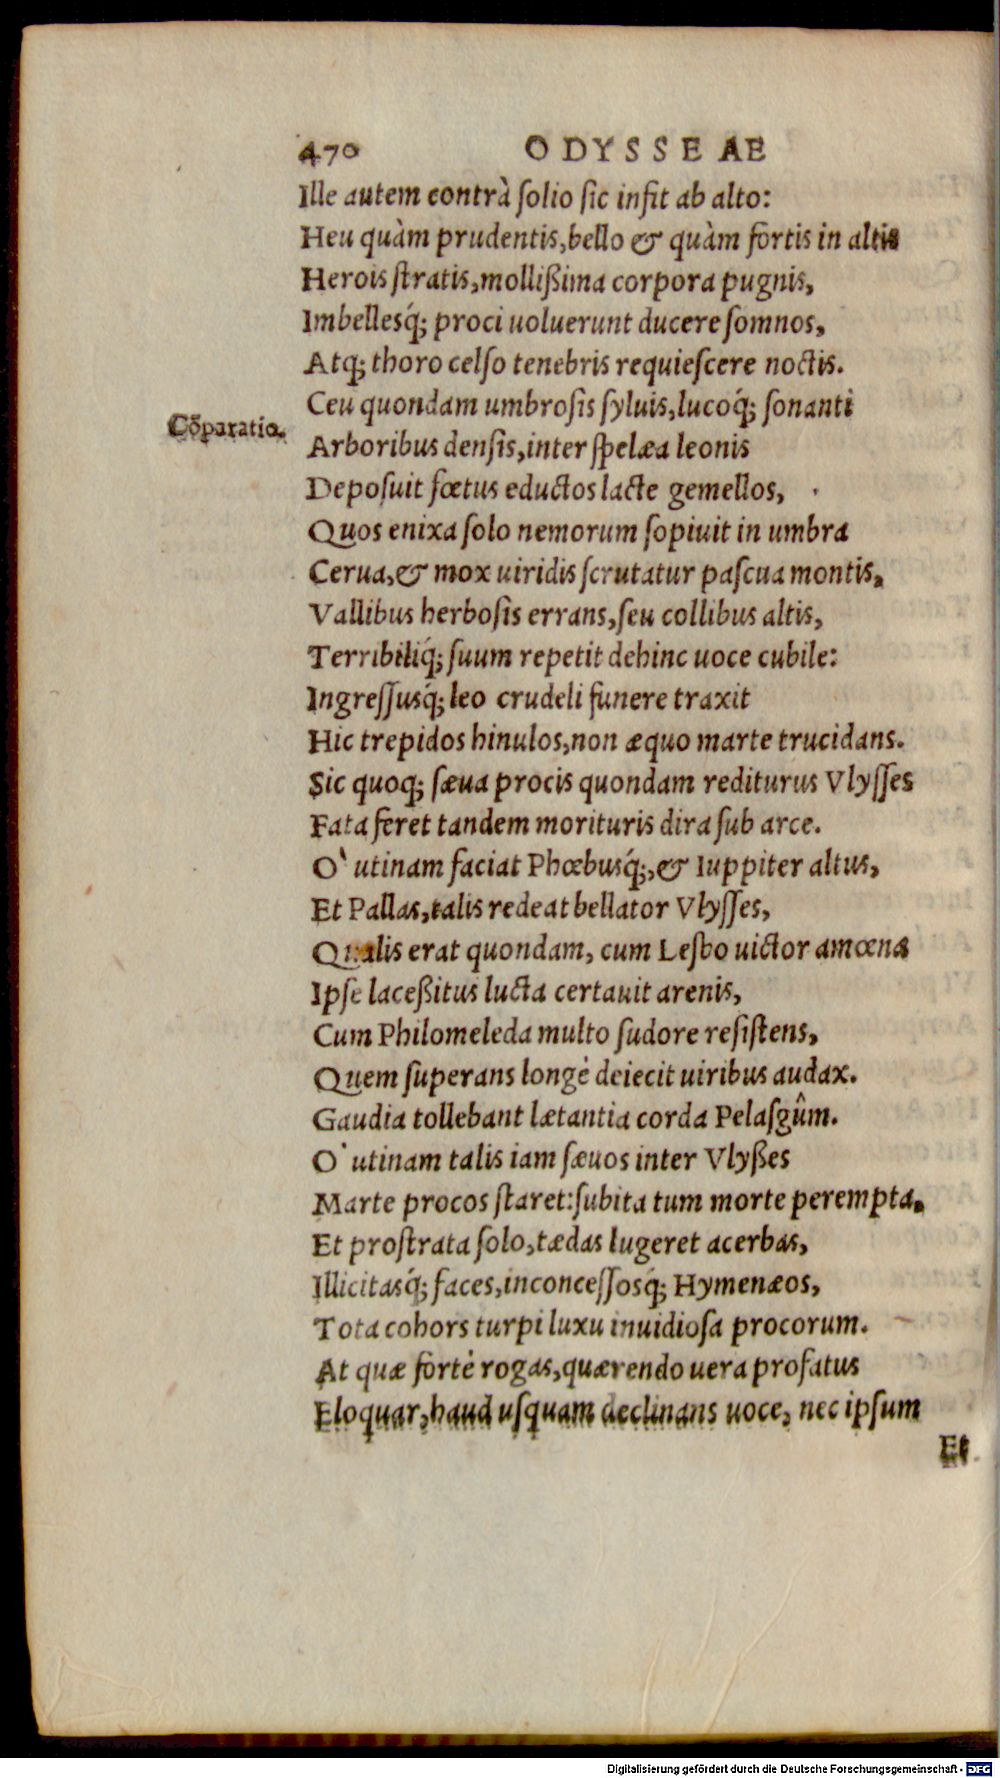 470 ODYSSEAE
Ille autem contrà ſolio ſic infit ab alto:
Heu quàm prudentis, bello & quàm fortis in altis
Herois ſtratis, mollißima corpora pugnis,
Imbellesq́; proci uoluerunt ducere ſomnos,
Atq; thoro celſo tenebris requieſcere noctis.
Ceu quondam umbroſis ſyluis, lucoq́; ſonanti
Cõparatio.
Arboribus denſis, inter ſpelæa leonis
Depoſuit fœtus eductos lacte gemellos,
Quos enixa ſolo nemorum ſopiuit in umbra
Cerua, & mox uiridis ſcrutatur paſcua montis,
Vallibus herboſis errans, ſeu collibus altis,
Terribiliq́; ſuum repetit dehinc uoce cubile:
Ingreſſusq́; leo crudeli funere traxit
Hic trepidos hinulos, non æquo marte trucidans.
Sic quoq; ſæua procis quondam rediturus Vlyſſes
Fata feret tandem morituris dira ſub arce.
O` utinam faciat Phœbusq́;, & Iuppiter altus,
Et Pallas, talis redeat bellator Vlyſſes,
Qualis erat quondam, cum Leſbo uictor amœna
Ipſe laceßitus lucta certauit arenis,
Cum Philomeleda multo ſudore reſiſtens,
Quem ſuperans longè deiecit uiribus audax.
Gaudia tollebant lætantia corda Pelaſgûm.
O` utinam talis iam ſæuos inter Vlyßes
Marte procos ſtaret: ſubita tum morte perempta,
Et proſtrata ſolo, tædas lugeret acerbas,
Illicitasq́; faces, inconceſſosq́; Hymenæos,
Tota cohors turpi luxu inuidioſa procorum.
At quæ fortè rogas, quærendo uera profatus
Eloquar, haud uſquam declinans uoce, nec ipſum
Et
Digitalisierung gefördert durch die Deutsche Forschungsgemeinschaft - DFG